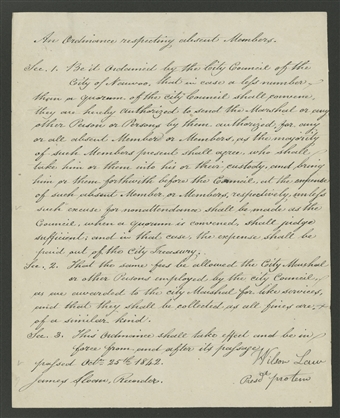 An Ordinance respecting absent Members.
Sec. 1. Be it Ordained by the City Council of the
City of Nauvoo, that in case a less number
than a quorum of the City Council shall convene,
they are hereby authorized to send the Marshal or any
other Person or Persons by them authorized, for any
or all absent Member or Members, as the majority
of such Members present shall agree, who shall
take him or them into his or their custody, and bring
him or them forthwith before the Council, at the expense
of such absent Member or Members, respectively, unless
such excuse for nonattendance shall be made, as the
Council, when a quorum is convened, shall judge
sufficient; and in that case, the expense shall be
paid out of the City Treasury.
Sec. 2. That the same fees be allowed the City Marshal
or other Persons employed by the City Council,
as are awarded to the City Marshal for like services,
and that they shall be collected as all fines are,
of a similar kind.
Sec. 3. This Ordinance shall take effect and be in
force from and after its passage,
passed Octr. 25th 1842. Wilson Law
James Sloan, Recorder. Presdt. protem